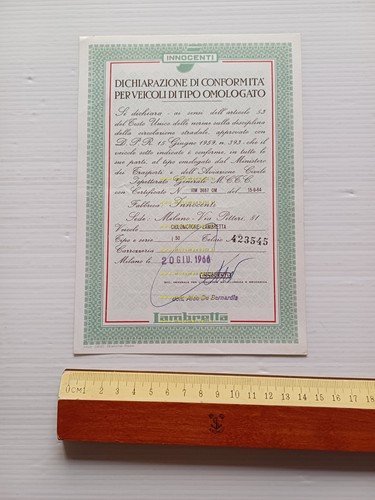 INNOCENTI
DICHIARAZIONE DI CONFORMITA'
PER VEICOLI DI TIPO OMOLOGATO
Si dichiara - ai sensi dell'articolo 53
del Testo Unico delle norme sulla disciplina
della circolazione stradale, approvato con
D. P. R. 15 Giugno 1959, n. 393, che il
veicolo sotto indicato è conforme in tutte le
sue parti, al tipo omologato dal Ministero
dei Trasporti e dell'Aviazione Civile
Ispettorato Generale M.C.T.C.
con Certificato N. 3087 OM del 15-9-64
Fabbrica Innocenti
Sede: Milano - Via Pitteri, 81
Veicolo CICLOMOTORE LAMBRETTA
Tipo e serie 50 Telaio N. 423545
Carrozzeria
Milano li 20 GIU. 1966
INNOCENTI
Dott. Aldo De Bernardis
Lambretta
0 CM 1 2 3 4 5 6 7 8 9 10 11 12 13 14 15 16 17 18